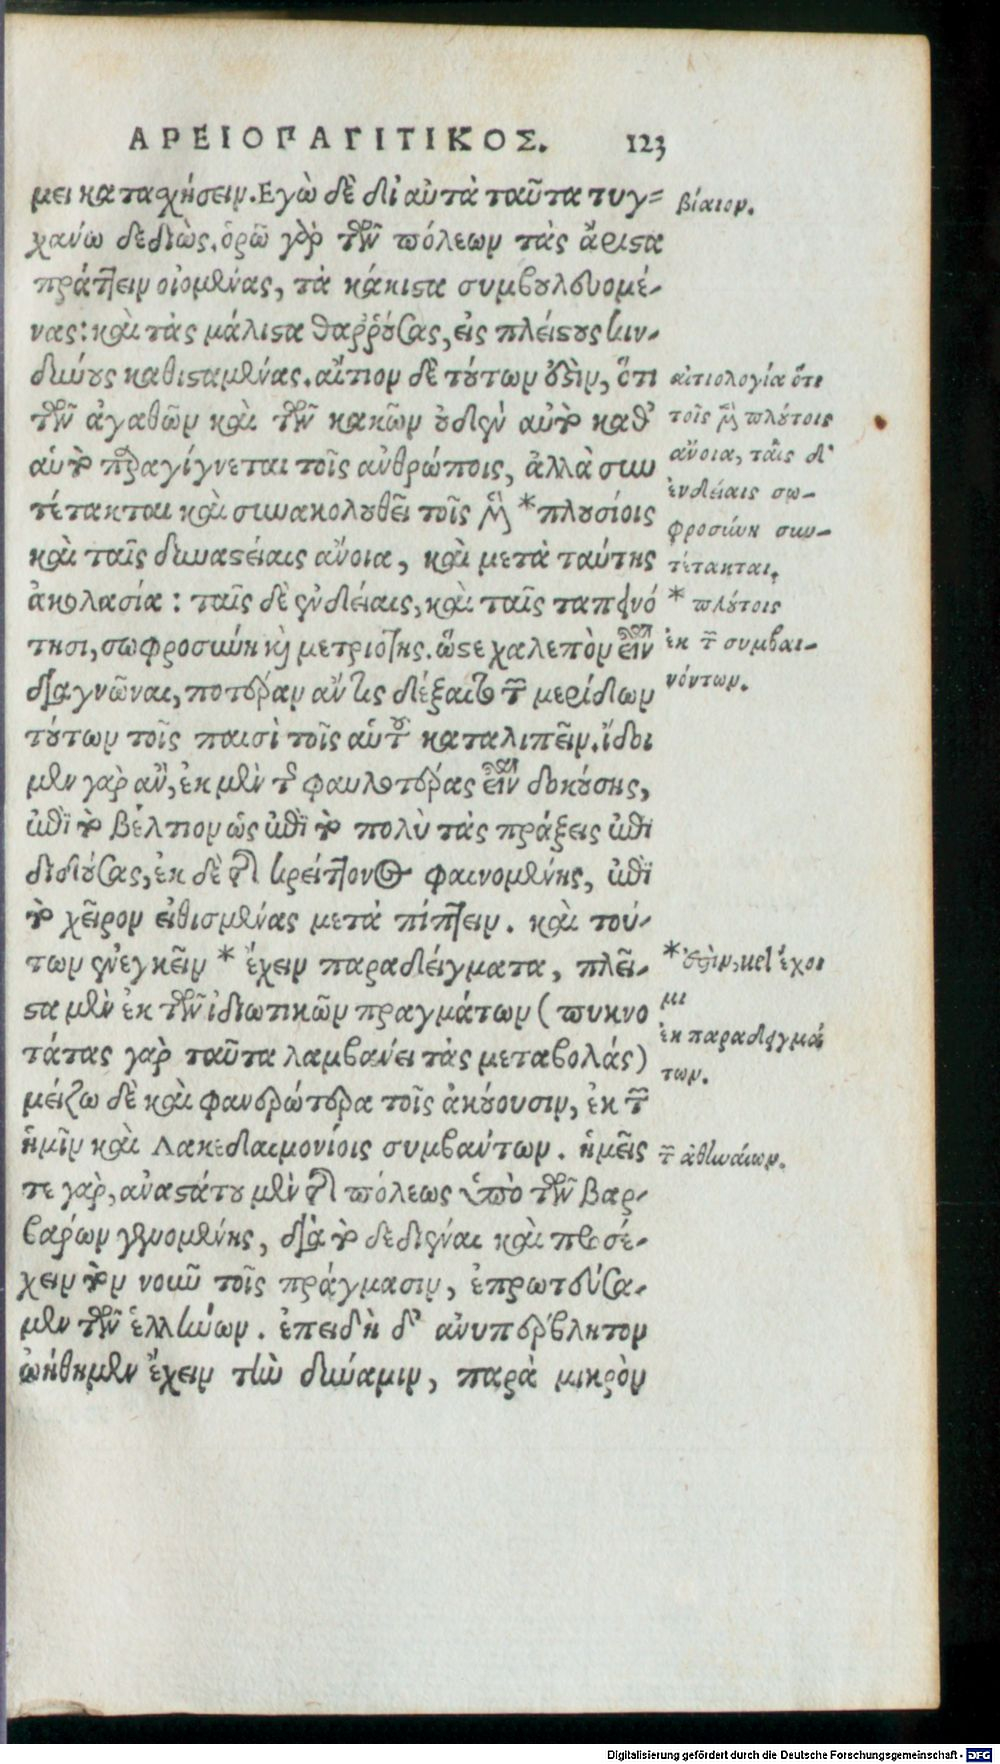 ΑΡΕΙΟΠΑΓΙΤΙΚΟΣ. 123
μει κατασχήσειν. Εγὼ δὲ δι' αὐτὰ ταῦτα τυγ=
χάνω δεδιὼς. ὁρῶ γὰρ τῶν πόλεων τὰς ἄριστα
πράττειν οἰομένας, τὰ κάκιστα συμβουλευομέ-
νας: καὶ τὰς μάλιστα θαῤῥούσας, εἰς πλείστους κιν-
δύνους καθισταμένας. αἴτιον δὲ τούτων ὅστιν, ὅτι
τῶν ἀγαθῶν καὶ τῶν κακῶν οὐδὲν αὐτὸ καθ'
αὑτὸ παραγίγνεται τοῖς ἀνθρώποις, ἀλλὰ συν
τέτακται καὶ συνακολουθεῖ τοῖς μὲν * πλουσίοις
καὶ ταῖς δυναστείαις ἄνοια, καὶ μετὰ ταύτης
ἀκολασία: ταῖς δὲ ἐνδείαις, καὶ ταῖς ταπεινό
τησι, σωφροσύνη καὶ μετριότης. ὥστε χαλεπὸν εἶναι
διαγνῶναι, ποτέραν ἄν τις δέξαιτο τῶν μερίδων
τούτων τοῖς παισὶ τοῖς αὑτοῦ καταλιπεῖν. ἴδοι
μεν γὰρ ἂν, ἐκ μὲν τῆς φαυλοτέρας εἶναι δοκούσης,
ἐπὶ τὸ βέλτιον ὡς ἐπὶ τὸ πολὺ τὰς πράξεις ἐπι
διδούσας, ἐκ δὲ τῆς κρείττονος φαινομένης, ἐπὶ
τὸ χεῖρον εἰθισμένας μεταπίπτειν. καὶ τού-
των ἐνεγκεῖν * ἔχειν παραδείγματα, πλεῖ-
στα μὲν ἐκ τῶν ἰδιωτικῶν πραγμάτων (πυκνο
τάτας γὰρ ταῦτα λαμβάνει τὰς μεταβολάς)
μείζω δὲ καὶ φανερώτερα τοῖς ἀκούουσιν, ἐκ τῶν
ἡμῖν καὶ Λακεδαιμονίοις συμβάντων. ἡμεῖς
τε γὰρ, ἀναστάτου μὲν τῆς πόλεως ὑπὸ τῶν βαρ-
βάρων γενομένης, διὰ τὸ δεδιέναι καὶ προσέ-
χειν τὸν νοῦν τοῖς πράγμασιν, ἐπρωτεύσα-
μεν τῶν ἑλλήνων. ἐπειδὴ δ' ἀνυπέρβλητον
ὠήθημεν ἔχειν τὴν δύναμιν, παρὰ μικρὸν
βίαιον.
αἰτιολογία ὅτι
τοῖς μὲν πλούτοις
ἄνοια, ταῖς δ'
ἐνδείαις σω-
φροσύνη συν-
τέτακται.
* πλούτοις
ἐκ τῶν συμβαι-
νόντων.
* uel ἔχοι
μι
ἐκ παραδειγμά
των.
τῶν ἀθηναίων.
Digitalisierung gefördert durch die Deutsche Forschungsgemeinschaft - DFG